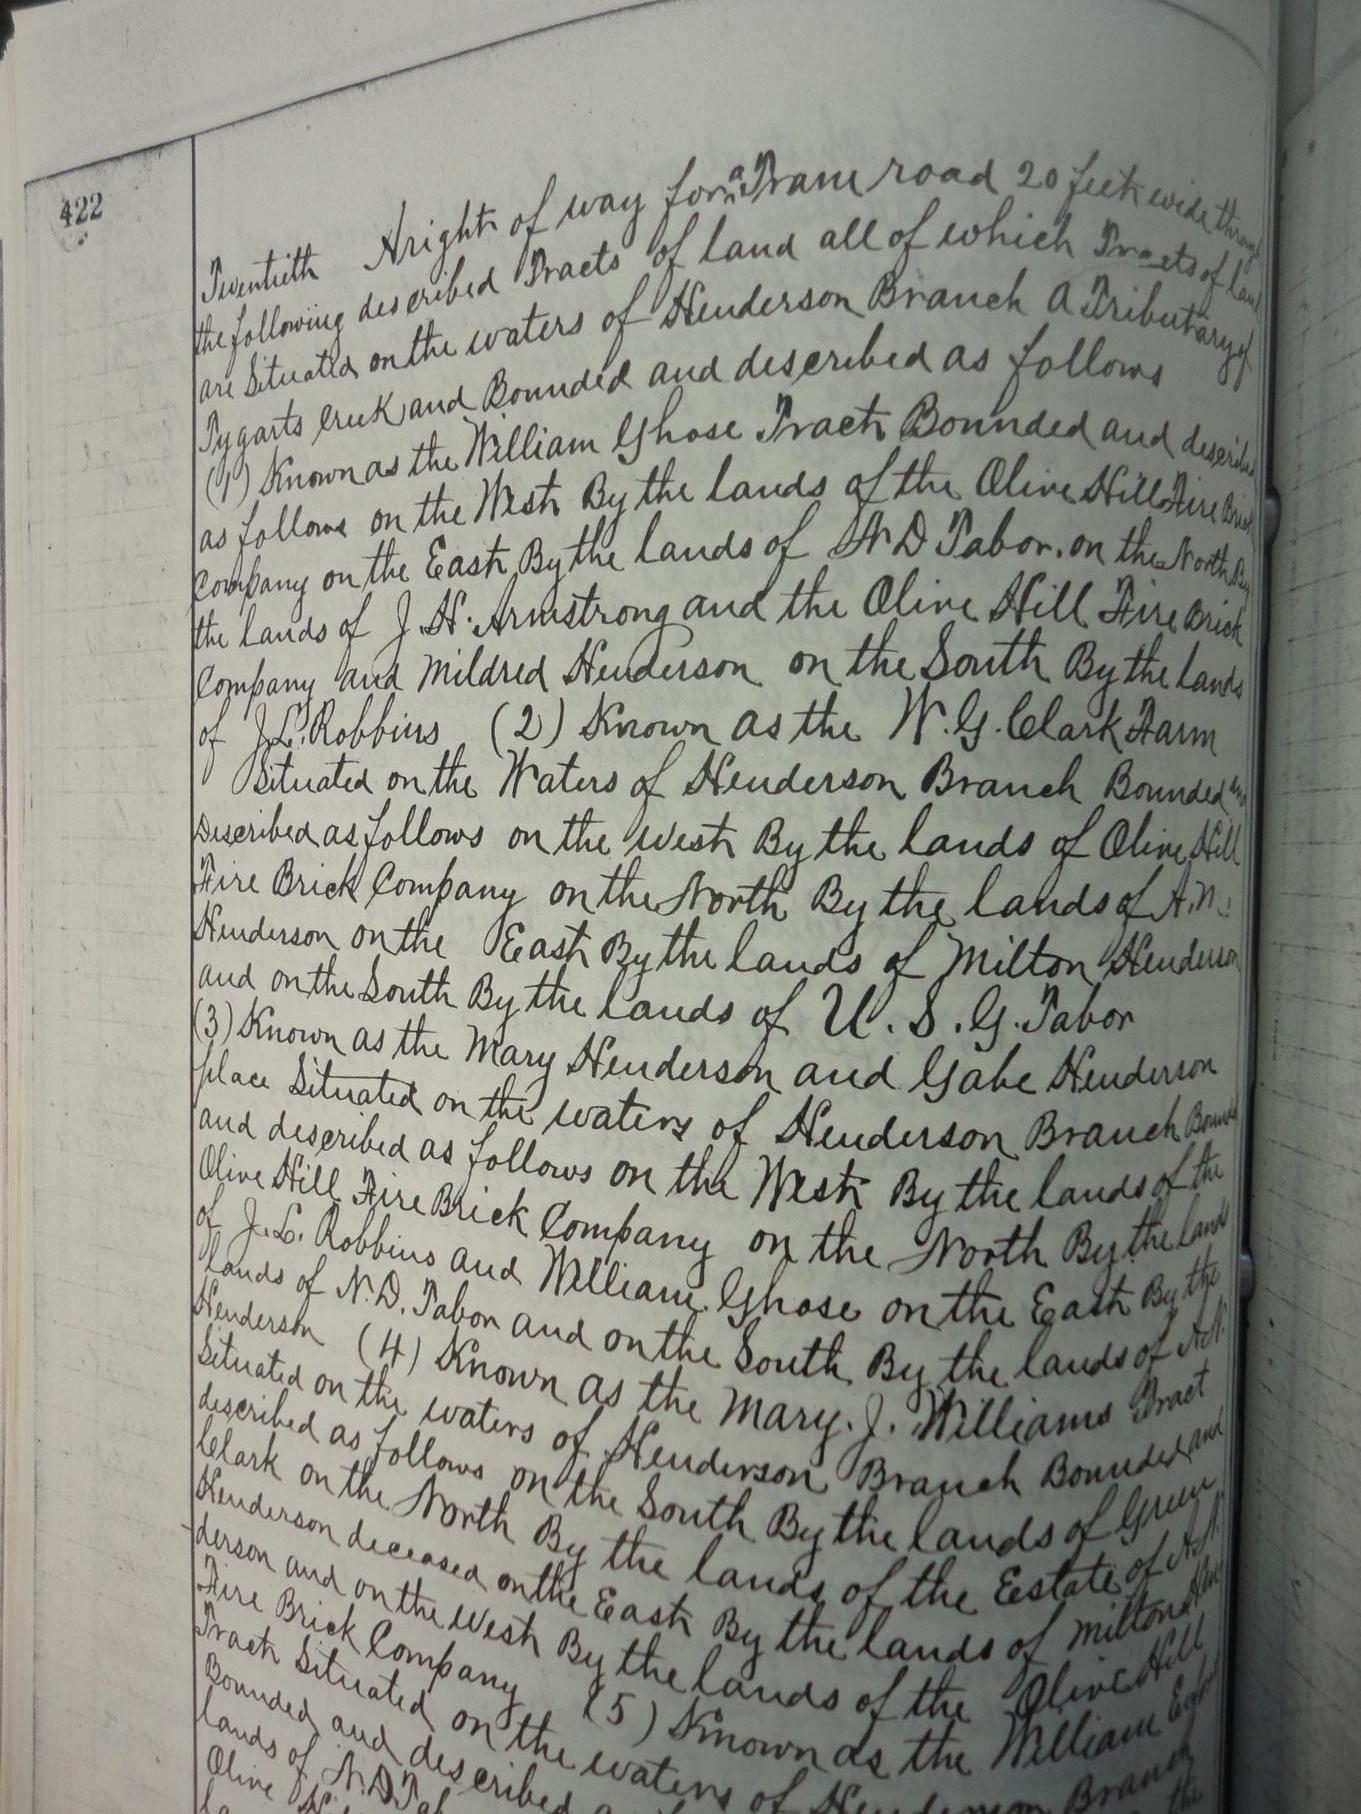 422
Twentieth A right of way for a Tram road 20 feet wide through
the following described Tracts of land all of which Tracts of land
are Situated on the waters of Henderson Branch A Tributary of
Tygarts Creek and Bounded and described as follows
(1) Known as the William Ghose Tract Bounded and described
as follows on the West By the lands of the Olive Hill Fire Brick
Company on the East By the lands of N D Tabor, on the North By
the lands of J. H. Armstrong and the Olive Hill Fire Brick
Company and Mildred Henderson on the South By the lands
of J. L. Robbins (2) Known as the W. G. Clark Farm
Situated on the Waters of Henderson Branch Bounded and
Described as follows on the west By the lands of Olive Hill
Fire Brick Company on the North By the lands of A. N.
Henderson on the East By the lands of Milton Henderson
and on the South By the lands of U. S. G. Tabor
(3) Known as the Mary Henderson and Gabe Henderson
place Situated on the waters of Henderson Branch
and described as follows on the West By the lands of the
Olive Hill Fire Brick Company on the North By the lands
of J. L. Robbins and William Ghose on the East By the
lands of N. D. Tabor and on the South By the lands of A. N.
Henderson (4) Known as the Mary. J. Williams Tract
Situated on the waters of Henderson Branch Bounded and
described as follows on the South By the lands of Green
Clark on the North By the lands of the Estate of A. N.
Henderson deceased on the East By the lands of Milton Hen
derson and on the West By the lands of the Olive Hill
Fire Brick Company (5) Known as the William
Tract Situated on the waters of Henderson Branch
Bounded and described
lands of N. D.
Olive